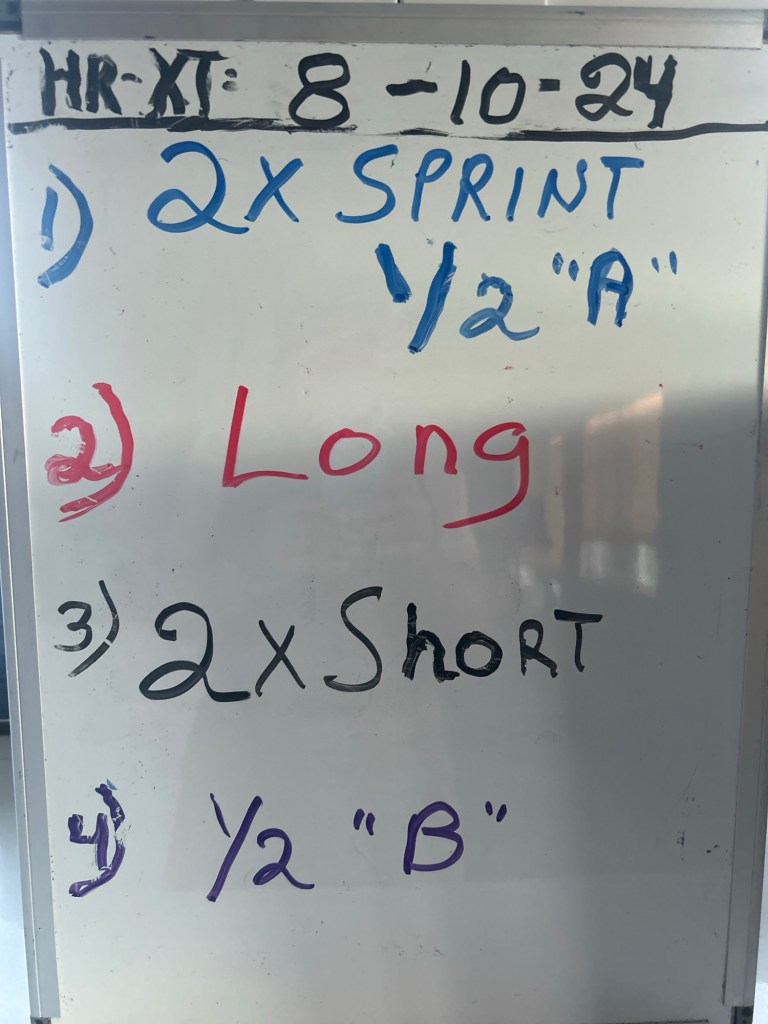 HR-XT: 8-10-24
1) 2X SPRINT
1/2 "A"
2) Long
3) 2X ShoRT
4) 1/2 "B"